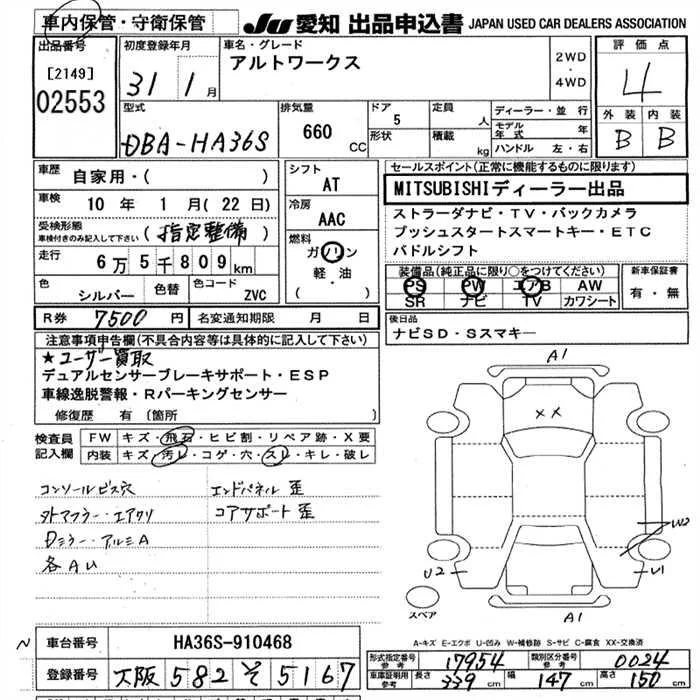 車内保管・守衛保管
JU 愛知 出品申込書 JAPAN USED CAR DEALERS ASSOCIATION
出品番号
[2149]
02553
初度登録年月
31 1月
車名・グレード
アルトワークス
2WD
・
4WD
評価点
4
外装 内装
B B
型式
DBA-HA36S
排気量
660 CC
ドア
5
形状
定員
人
積載
kg
ディーラー・並行
モデル年式 年
ハンドル 左・右
車歴 自家用・( )
車検 10年 1月(22日)
受検形態
車検付きのみ記入して下さい (指定整備)
走行 6万5千809km
色 シルバー 色替 色コード ZVC
シフト
AT
冷房
AAC
燃料
ガソリン
軽・油
( )
R券 7500円 名変通知期限 月 日
セールスポイント(正常に機能するものに限ります)
MITSUBISHIディーラー出品
ストラーダナビ・TV・バックカメラ
プッシュスタートスマートキー・ETC
パドルシフト
装備品(純正品に限り○をつけてください)
PS PW エアB AW
SR ナビ TV カワシート
新車保証書
有・無
後日品
ナビSD・Sスマキー
注意事項申告欄(不具合内容等は具体的に記入して下さい)
★ユーザー買取
デュアルセンサーブレーキサポート・ESP
車線逸脱警報・Rパーキングセンサー
修復歴 有(箇所
検査員記入欄
FW キズ・飛石・ヒビ割・リペア跡・X要
内装 キズ・汚レ・コゲ・穴・スレ・キレ・破レ
コンソールビス穴 エンドパネル歪
コアサポート歪
各AU
A1
XX
W2
U2
U1
A1
スペア
A-キズ E-エクボ U-凹み W-補修跡 S-サビ C-腐食 XX-交換済
車台番号 HA36S-910468
登録番号 大阪 582 そ 5167
形式指定番号
参考 17954
類別区分番号
参考 0024
車庫証明用
参考
長さ 339cm 幅 147cm 高さ 150cm